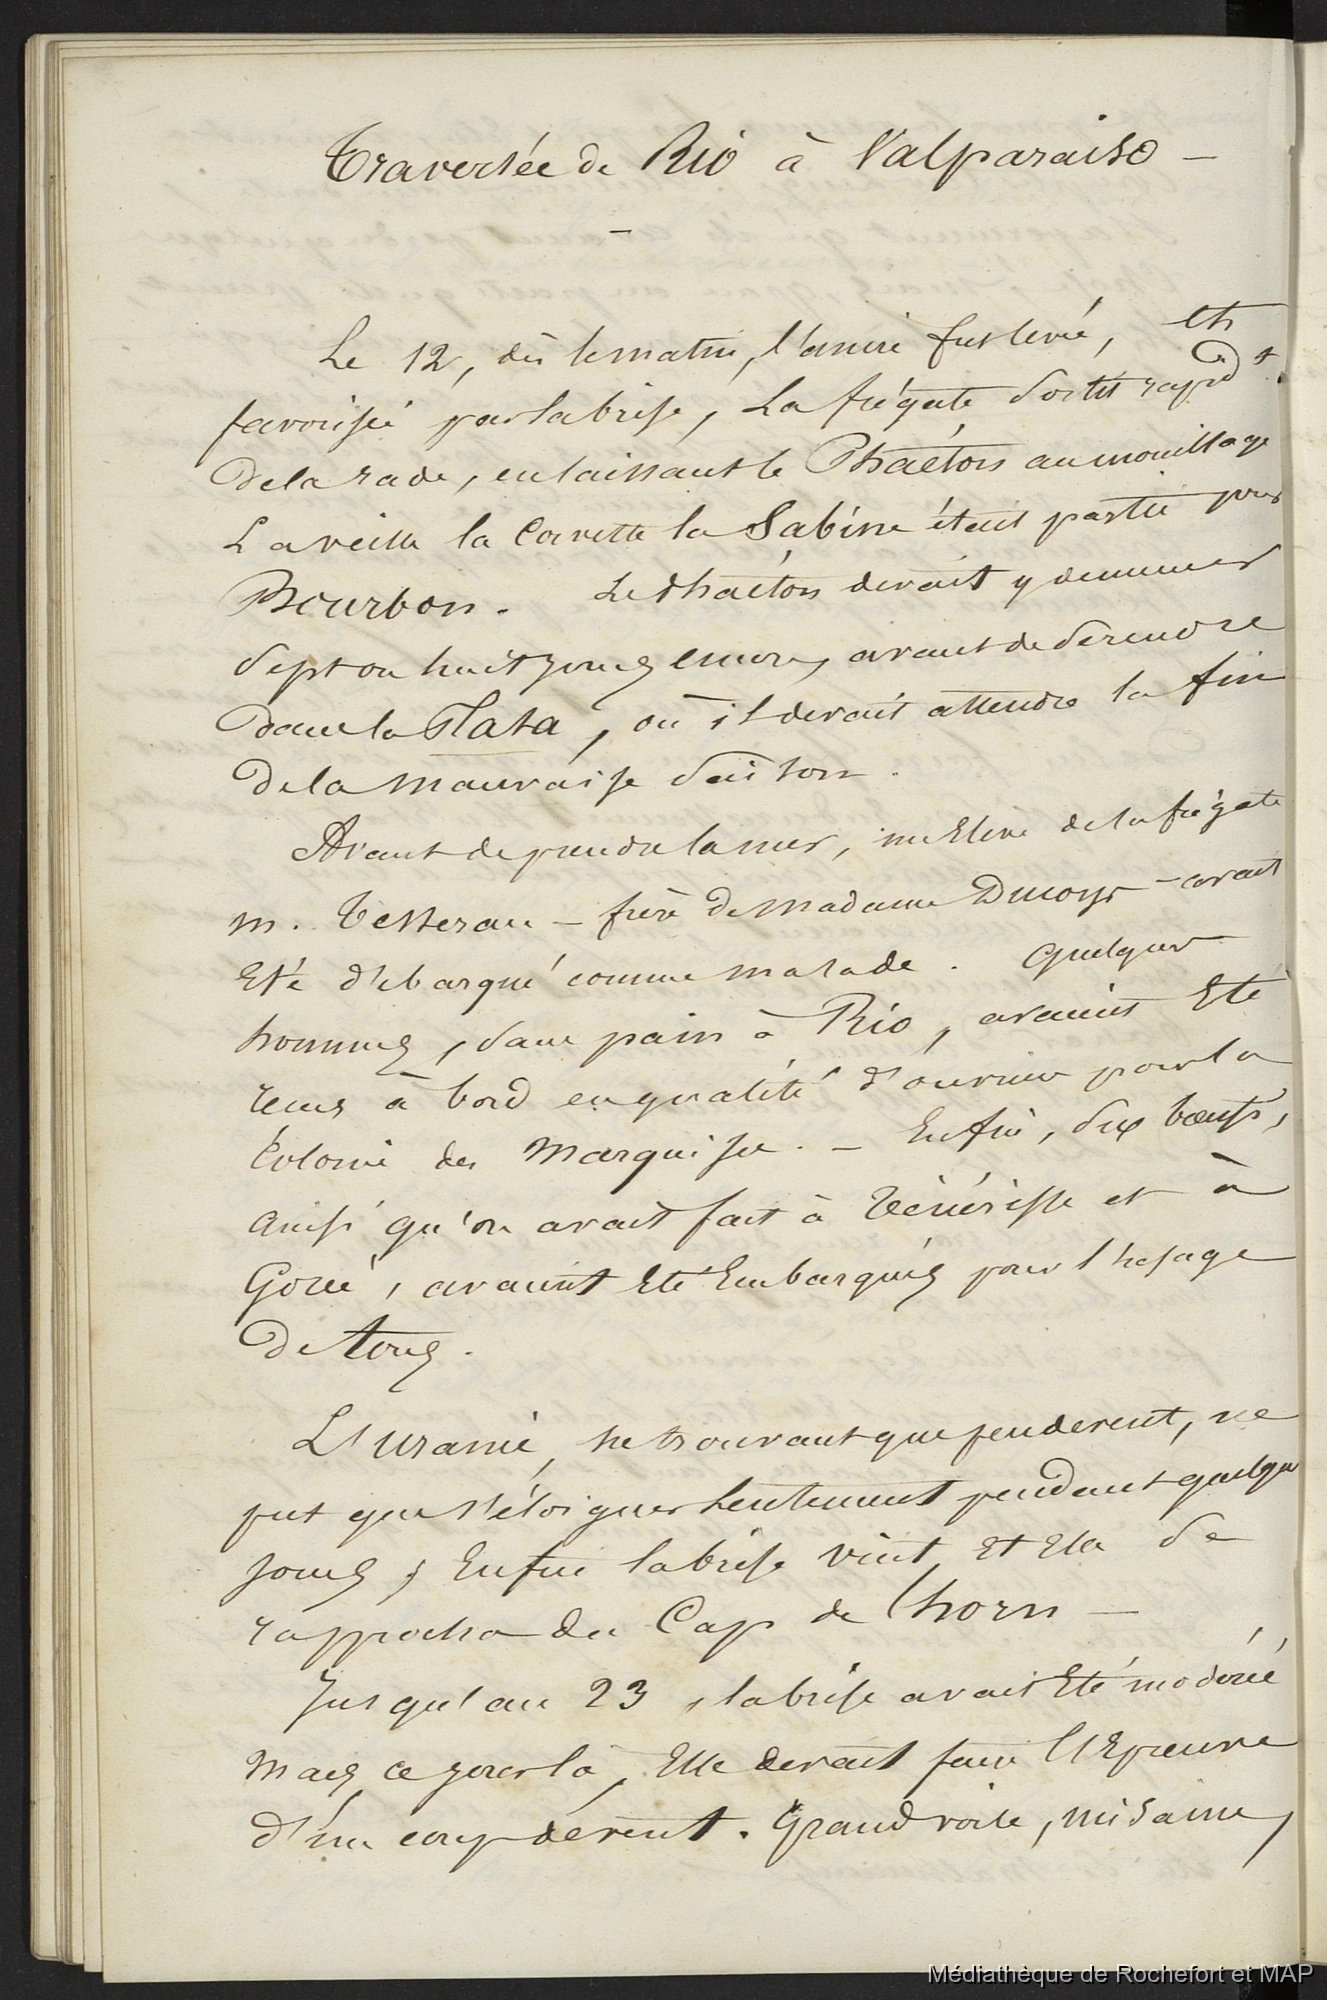 Traversée de Rio à Valparaiso —
—
Le 12, dès le matin, l'ancre fut levée, et
favorisée par la brise, la frégate sortit rapidt
de la rade, en laissant le Phaéton au mouillage
La veille la Corvette la Sabine était partie pour
Bourbon. Le Phaéton devait y demeurer
sept ou huit jours encore, avant de se rendre
dans la Plata, où il devait attendre la fin
de la mauvaise saison.
Avant de prendre la mer, un Elève de la frégate
m. Tesserau — frère de Madame Ducoys — avait
Eté débarqué comme malade. Quelques
hommes, sans pain à Rio, avaient Eté
reçus à bord en qualité d'ouvriers pour la
Colonie des Marquises. — Enfin, dix bœufs,
ainsi qu'on avait fait à Ténériffe et à
Gorée, avaient Eté Embarqués pour l'usage
de tous.
L'Uranie, ne trouvant que peu de vent, ne
put que s'éloigner lentement pendant quelques
jours; Enfin la brise vint, Et Elle se
rapprocha du Cap de Horn —
Jusqu'au 23, la brise avait Eté modérée
Mais ce jour là, Elle devait faire l'Epreuve
d'un coup de vent. Grand voile, misaine,
Médiathèque de Rochefort et MAP